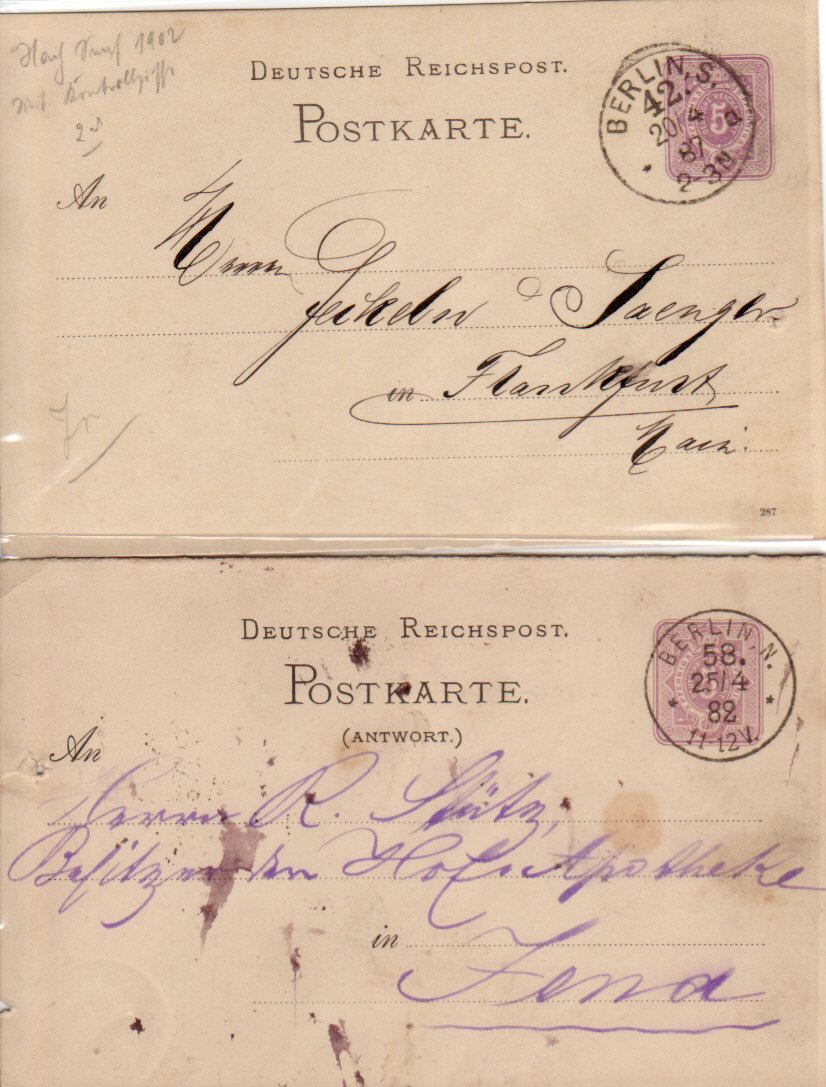 1902
mit Kontrollziff.
DEUTSCHE REICHSPOST.
POSTKARTE.
BERLIN, S.
42.
20/4
87
2-3N
d
5
An
Herrn
Jeckeln & Saenger
in Frankfurt
Main.
287
DEUTSCHE REICHSPOST.
POSTKARTE.
(ANTWORT.)
BERLIN, N.
58.
25/4
82
11-12V.
An
Herrn R. Stütz,
Besitzer der Hof-Apotheke
in
Jena